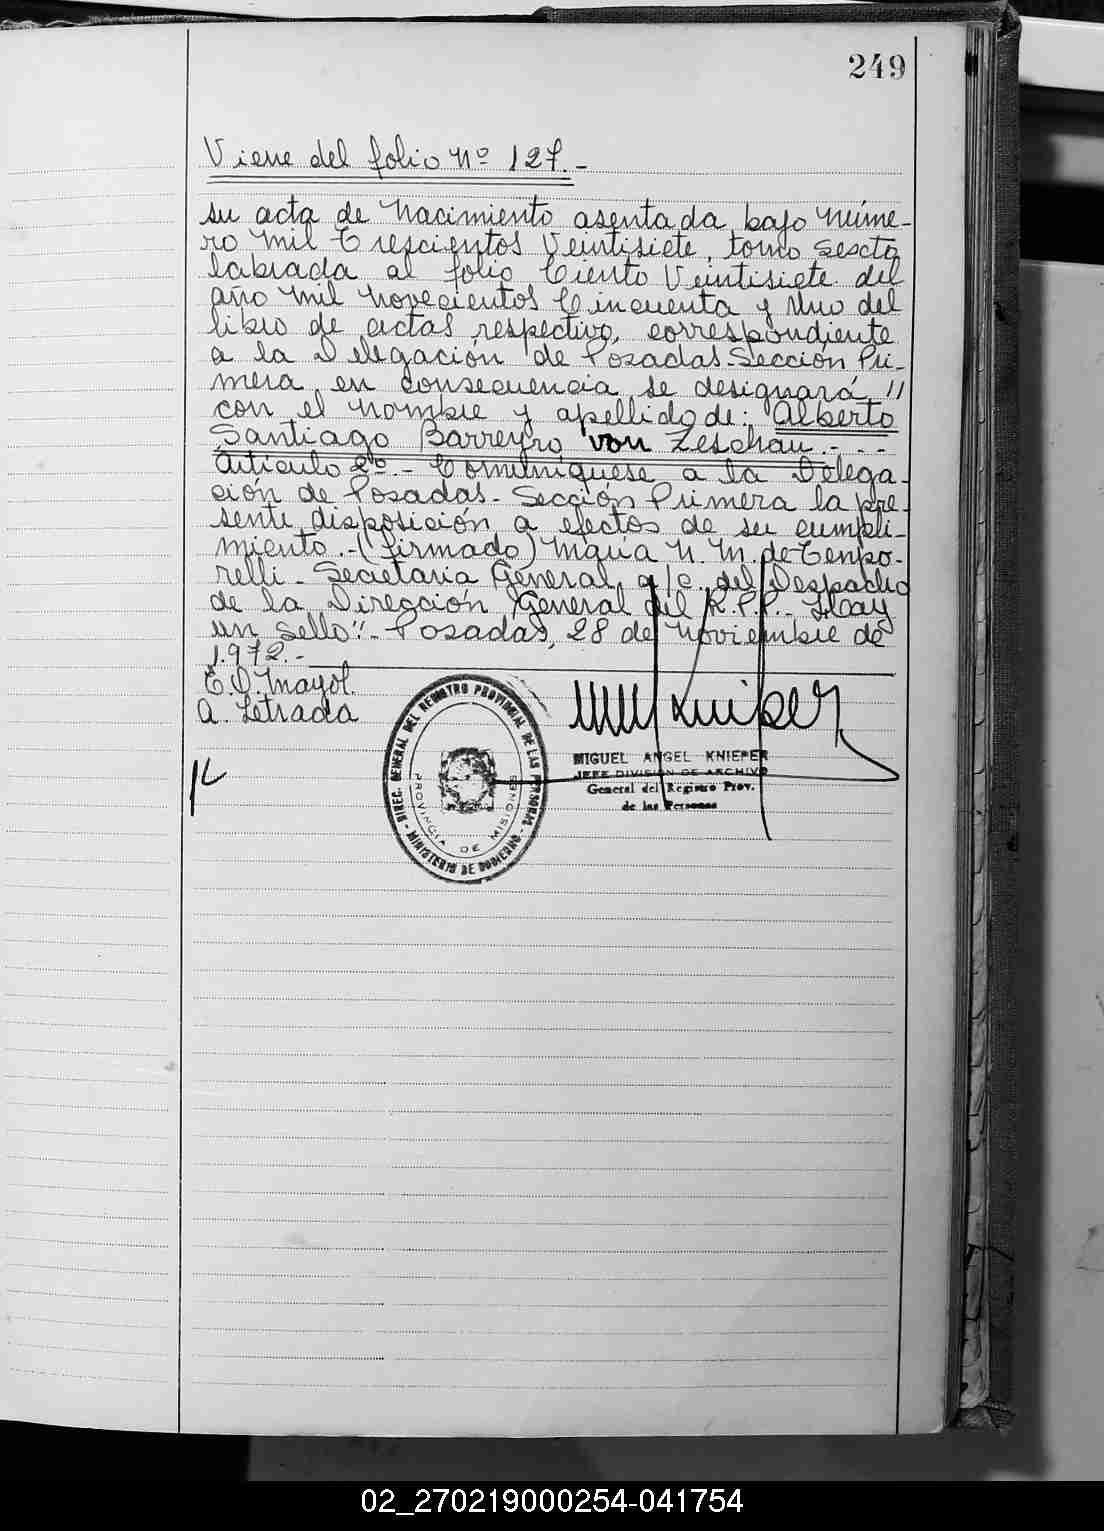 249
Viene del folio Nº 127.-
su acta de Nacimiento asentada bajo Núme-
ro Mil Trescientos Veintisiete, tomo sexto
labrada al folio Ciento Veintisiete del
año Mil Novecientos Cincuenta y Uno del
libro de actas respectivo, correspondiente
a la Delegación de Posadas Sección Pri-
mera, en consecuencia se designará //
con el nombre y apellido de: Alberto
Santiago Barreyro von Zeschau.- - -
Artículo 2º.- Comuníquese a la Delega-
ción de Posadas - Sección Primera la pre-
sente disposición a efectos de su cumpli-
miento.- (firmado) María N. M. de
relli - Secretaria General a/c. del Despacho
de la Dirección General del R.P.P.- Hay
un sello".- Posadas, 28 de Noviembre de
1.972.-
E.O. Mayol.
A. Letrada
MIGUEL ANGEL KNIEPER
JEFE DIVISION DE ARCHIVO
General del Registro Prov.
de las Personas
DIREC. GENERAL DEL REGISTRO PROVINCIAL DE LAS PERSONAS
PROVINCIA DE MISIONES
MINISTERIO DE GOBIERNO
02_270219000254-041754